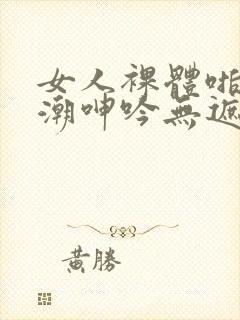 女人裸體啪
潮呻吟無遮
黃勝